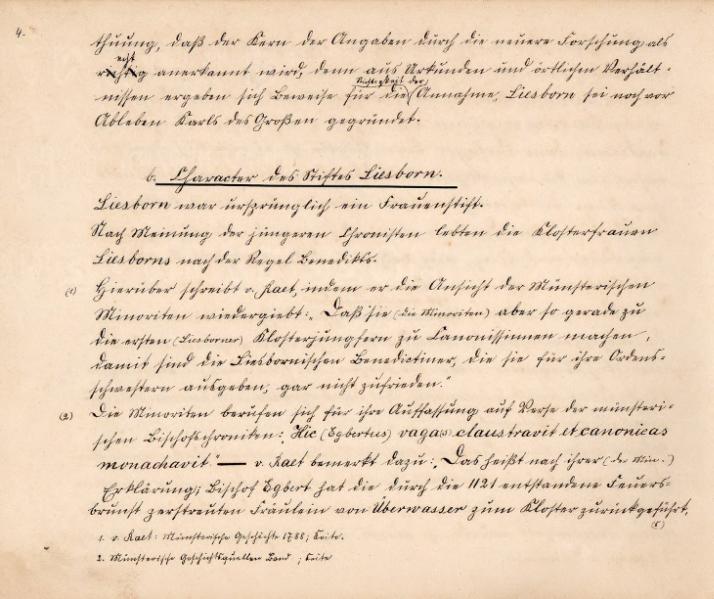 4.
thuung, daß der Kern der Angaben durch die neuere Forschung als
echt
richtig anerkannt wird, denn aus Urkunden und örtlichen Verhält-
Richtigkeit der
nissen ergeben sich Beweise für die Annahme, Liesborn sei noch vor
Ableben Karls des Großen gegründet.
b. Character des Stiftes Liesborn.
Liesborn war ursprünglich ein Frauenstift.
Nach Meinung der jüngeren Chronisten lebten die Klosterfrauen
Liesborns nach der Regel Benedikts.
(1) Hierüber schreibt v. Raet, indem er die Ansicht der Münsterischen
Minoriten wiedergiebt: „Daß sie (die Minoriten) aber so gerade zu
die ersten (Liesborner) Klosterjungfern zu Canonissinnen machen,
damit sind die Liesbornischen Benedictiner, die sie für ihre Ordens-
schwestern ausgeben, gar nicht zufrieden."
(2) Die Minoriten berufen sich für ihre Auffassung auf Verse der münsteri-
schen Bischofschroniken: „Hic (Egbertus) vaga(s) claustravit et canonicas
monachavit" — v. Raet bemerkt dazu: „Das heißt nach ihrer (der Min.)
Erklärung; Bischof Egbert hat die durch die 1121 entstandene Feuers-
brunst zerstreuten Fräulein von Überwasser zum Kloster zurückgeführt.
1. v. Raet: Münsterische Geschichte 1788; Seite.
2. Münsterische Geschichtsquellen Band ; Seite